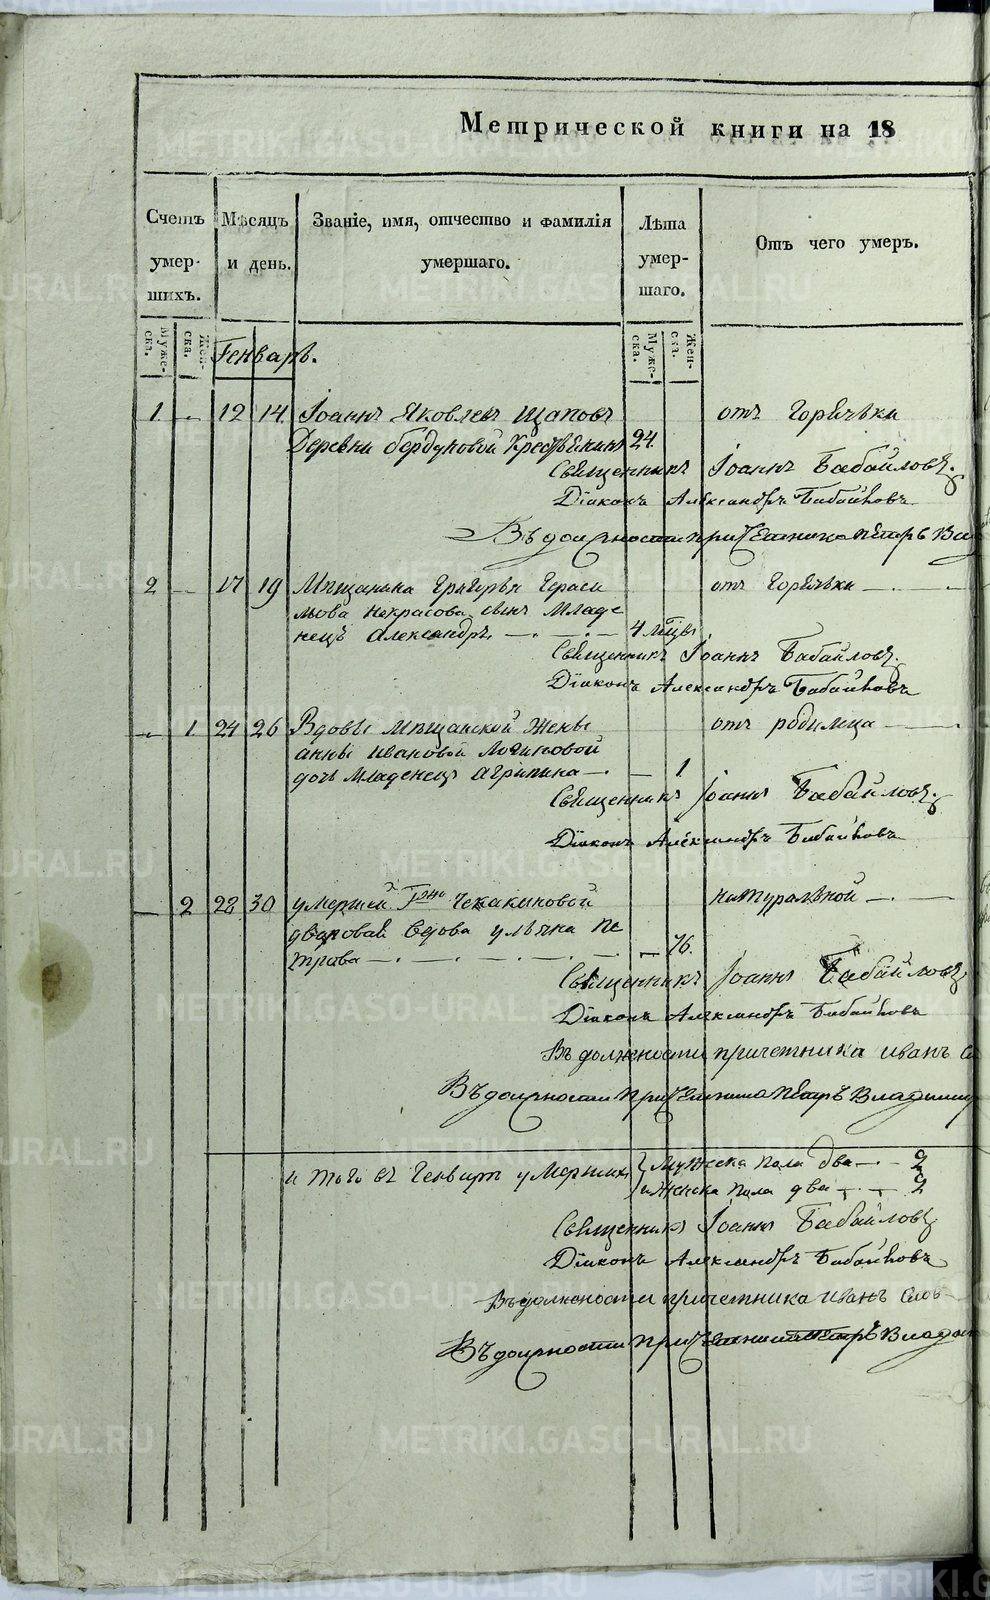 Метрической книги на 18
Счетъ умер-шихъ.
Мѣсяцъ и день.
Званіе, имя, отчество и фамилія умершаго.
Лѣта умер-шаго.
Отъ чего умеръ.
Муже-ска.
Жен-ска.
Муже-ска.
Жен-ска.
Генварь.
1 12 14 Іоаннъ Яковлевъ Щаповъ отъ горячьки
Деревни бердюковой Крестьянинъ 24.
Священникъ Іоаннъ Бабайловъ.
Діаконъ Александръ Бабайловъ
Въ должности причетника Петръ Влад
2 17 19 Мѣщанина Григорья Гераси отъ горячьки
мова Некрасова сынъ Младе
нецъ Александръ 4 мцы
Священникъ Іоаннъ Бабайловъ.
Діаконъ Александръ Бабайловъ
1 24 26 Вдовы мѣщанской Жены отъ родимца
Анны Ивановой Логиновой
дочь младенецъ Агрипина 1
Священникъ Іоаннъ Бабайловъ.
Діаконъ Александръ Бабайловъ
2 28 30 умершей Гжи натуральной
дворовая вдова Пе
трова 76.
Священникъ Іоаннъ Бабайловъ
Діаконъ Александръ Бабайловъ
Въ должности причетника Иванъ
Въ должности причетника Петръ Владимир
итого въ Генварѣ умершихъ мужеска пола два 2
и женска пола два 2
Священникъ Іоаннъ Бабайловъ
Діаконъ Александръ Бабайловъ
Въ должности причетника Иванъ Слов
Въ должности причетника Петръ Владим
METRIKI.GASO-URAL.RU